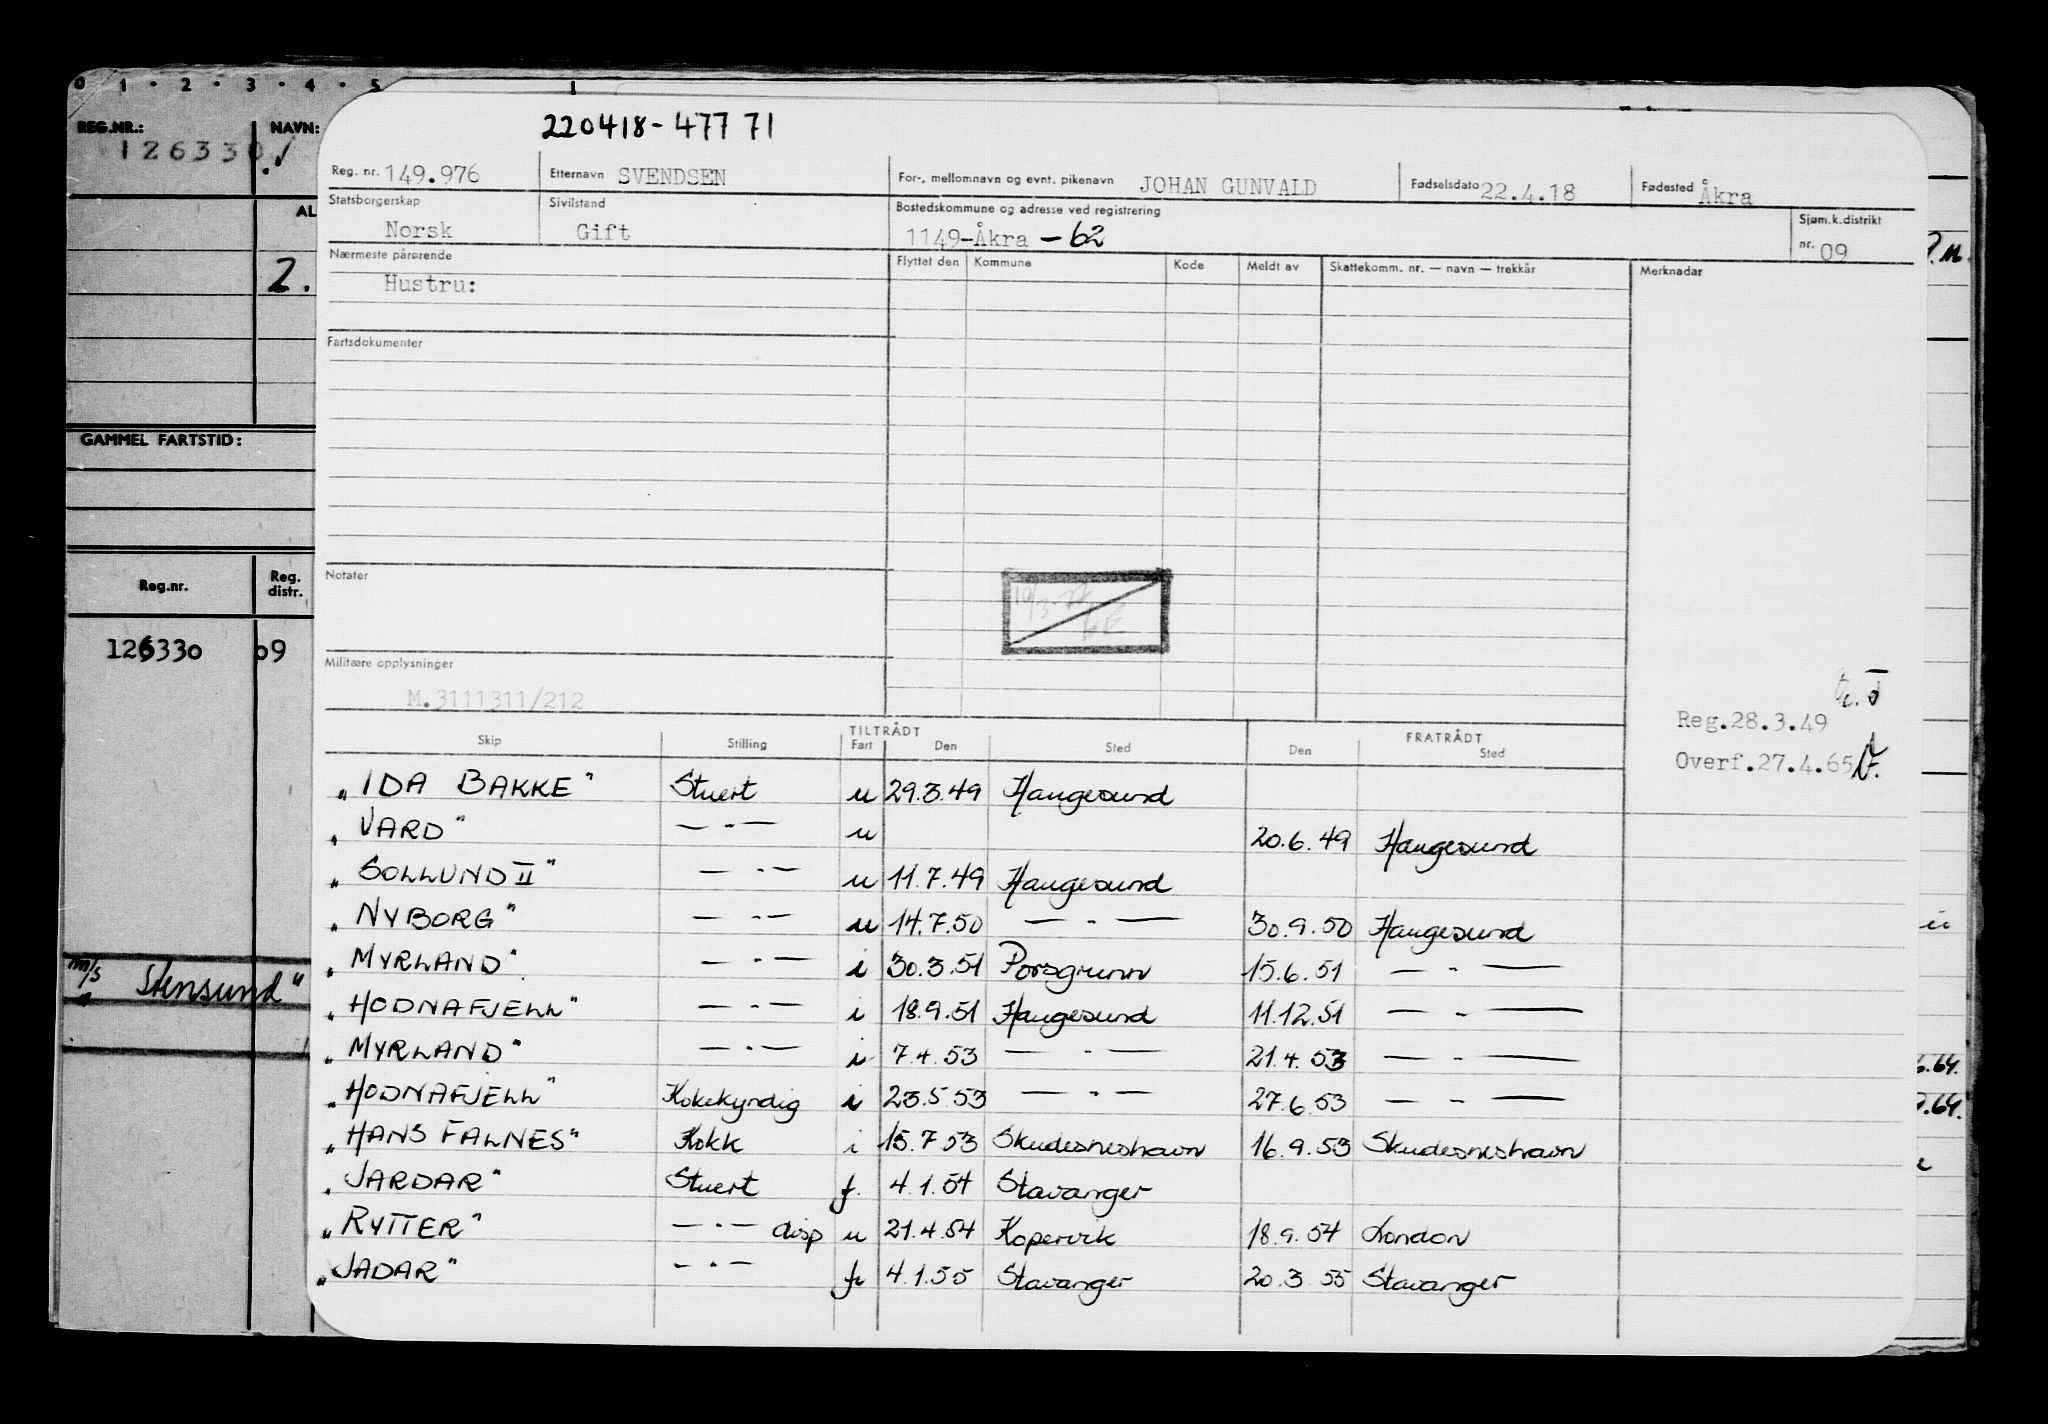 0 1 · 2 · 3 · 4 · 5 1
REG.NR.: NAVN:
126330
AL
2.
GAMMEL FARTSTID:
Reg.nr. Reg. distr.
126330 09
m/s "Stensund"
220418-477 71
Reg. nr. 149.976 Etternavn SVENDSEN For-, mellomnavn og evnt. pikenavn JOHAN GUNVALD Fødselsdato 22.4.18 Fødested Åkra
Statsborgerskap Norsk Sivilstand Gift Bostedskommune og adresse ved registrering 1149-Åkra -62 Sjøm.k.distrikt nr. 09
Nærmeste pårørende Flyttet den Kommune Kode Meldt av Skattekomm. nr. — navn — trekkår Merknadar
Hustru:
Fartsdokumenter
Notater
Militære opplysninger
M.3111311/212
Reg.28.3.49
Overf.27.4.65
TILTRÅDT FRATRÅDT
Skip Stilling Fart Den Sted Den Sted
"IDA BAKKE" Stuert u 29.3.49 Haugesund
"VARD" — " — u 20.6.49 Haugesund
"SOLLUND II" — " — u 11.7.49 Haugesund
"NYBORG" — " — u 14.7.50 — " — 30.9.50 Haugesund
"MYRLAND" — " — i 30.3.51 Porsgrunn 15.6.51 — " —
"HODNAFJELL" — " — i 18.9.51 Haugesund 11.12.51 — " —
"MYRLAND" — " — i 7.4.53 — " — 21.4.53 — " —
"HODNAFJELL" Kokkyndig i 23.5.53 — " — 27.6.53 — " —
"HANS FALNES" Kokk i 15.7.53 Skudesneshavn 16.9.53 Skudesneshavn
"JARDAR" Stuert f. 4.1.54 Stavanger
"RYTTER" — " — disp u 21.4.54 Kopervik 18.9.54 London
"JADAR" — " — f. 4.1.55 Stavanger 20.3.55 Stavanger